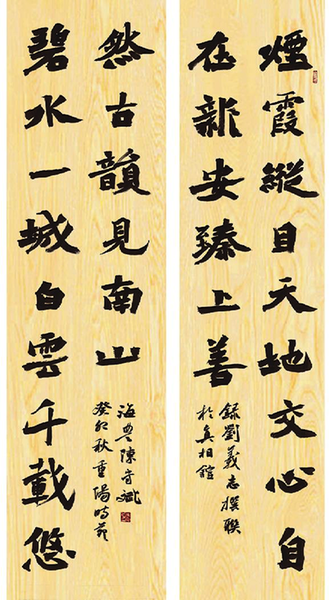 煙霞縱目天地交心自
在新安臻上善
錄劉義志撰聯
於真相館
碧水一城白雲千載悠
然古韻見南山
癸卯秋重陽時節
海豐陳